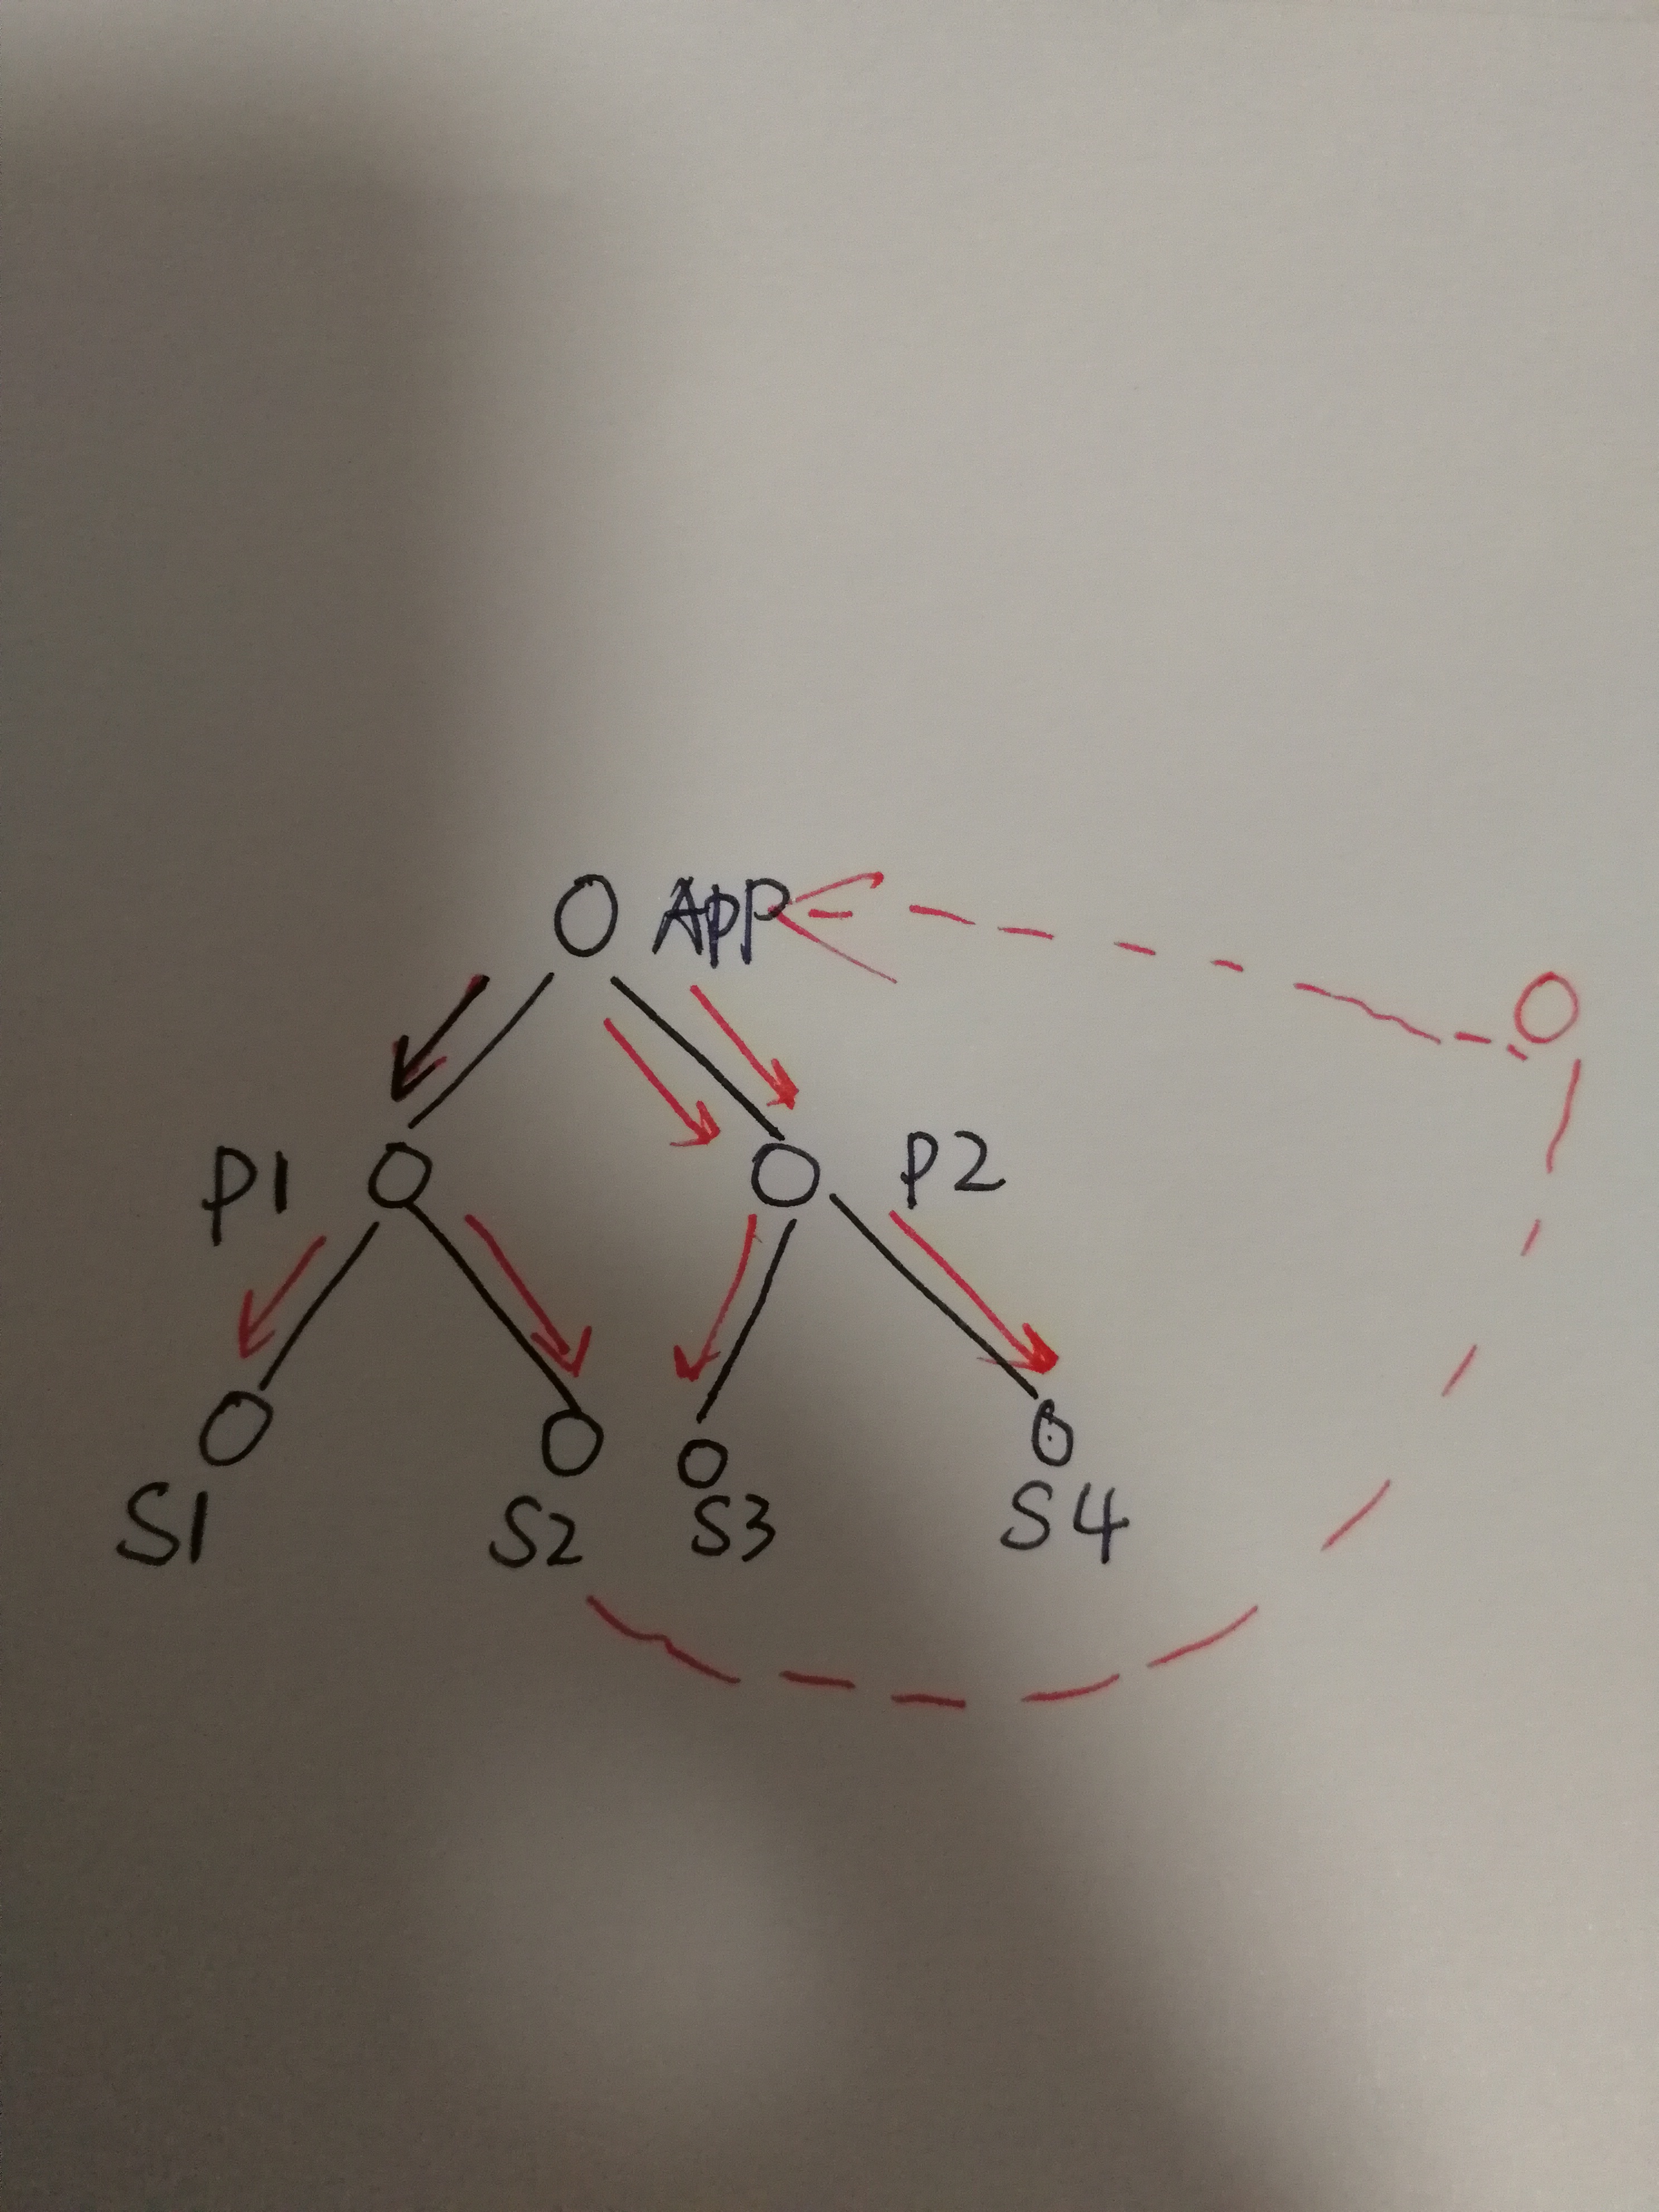 APP
P1
P2
S1
S2
S3
S4